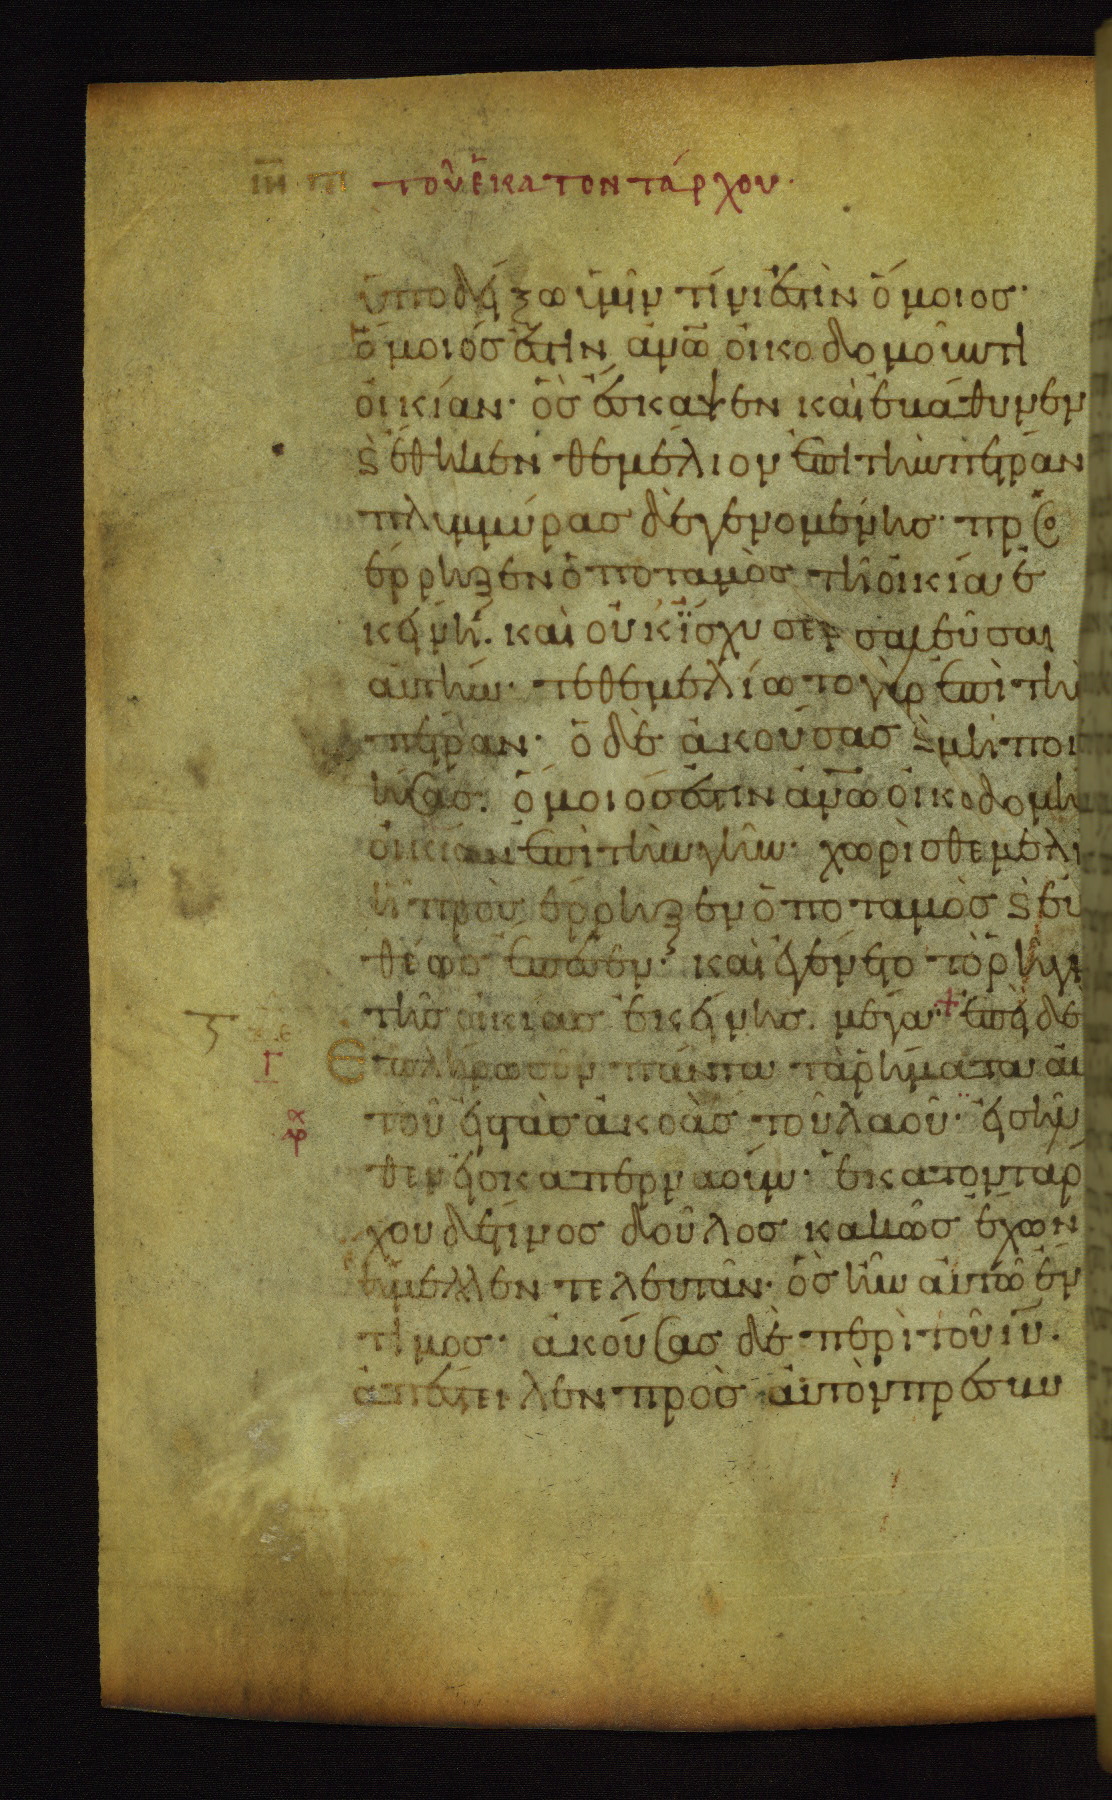 τοῦ ἑκατοντάρχου·
ὑποδείξω ὑμῖν τίνι ἐστὶν ὅμοιος·
ὅμοιός ἐστιν ἀν̅ω̅ οἰκοδομοῦντι
οἰκίαν· ὃς ἔσκαψεν καὶ ἐβάθυνεν
ϛ̀ ἔθηκεν θεμέλιον ἐπὶ τὴν πέτραν
πλημμύρας δὲ γενομένης· προσ
έρρηξεν ὁ ποταμὸς τῆ οἰκία ἐ
κείνη· καὶ οὐκ ἴσχυσεν σαλεῦσαι
αὐτήν· τεθεμελίωτο γὰρ ἐπὶ τὴν
πέτραν· ὁ δὲ ἀκούσας ϛ̀ μὴ ποι
ήσας· ὅμοιός ἐστιν ἀν̅ω̅ οἰκοδομή
οἰκίαν ἐπὶ τὴν γῆν· χωρὶς θεμελί
ἡ προσέρρηξεν ὁ ποταμὸς ϛ̀ εὐ
θέως ἔπεσεν· καὶ ἐγένετο τὸ ῥῆγμ
τῆς οἰκίας ἐκείνης· μέγα· + ἐπεὶ δὲ
Γ Ἐπλήρωσεν πάντα τὰ ῥήματα αὐ
τοῦ εἰς τὰς ἀκοὰς τοῦ λαοῦ· εἰσῆλ
θεν εἰς καπερναούμ· ἑκατοντάρ
χου δέ τινος δοῦλος κακῶς ἔχων
ἤμελλεν τελευτᾶν· ὃς ἦν αὐτῶ ἔν
τιμος· ἀκούσας δὲ περὶ τοῦ ἰ̅υ̅·
ἀπέστειλεν πρὸς αὐτὸν πρεσβυ